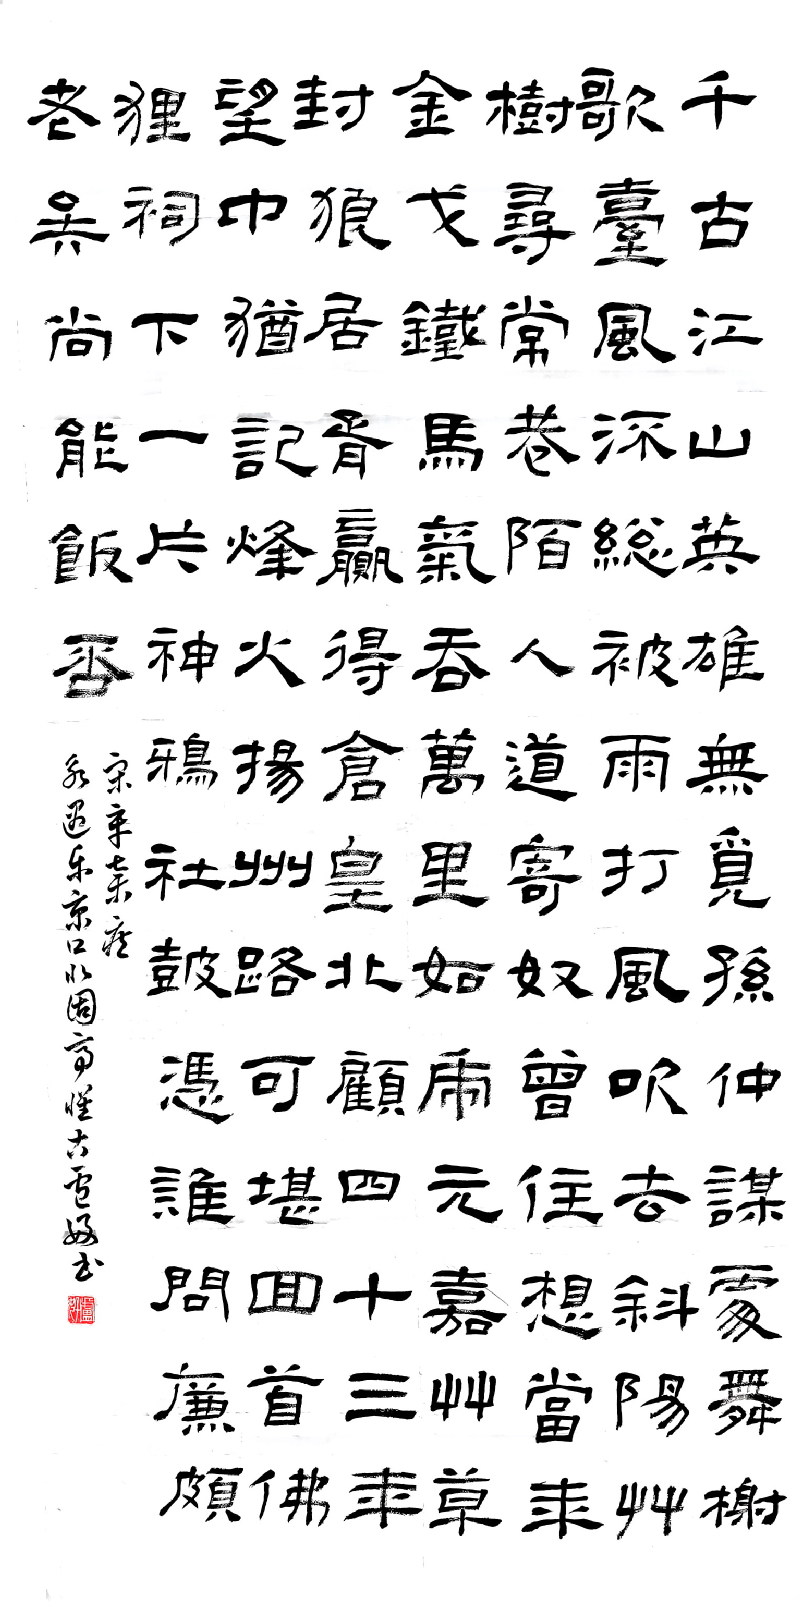 千古江山英雄無覓孫仲謀處舞榭
歌臺風流總被雨打風吹去斜陽艸
樹尋常巷陌人道寄奴曾住想當年
金戈鐵馬氣吞萬里如虎元嘉艸草
封狼居胥贏得倉皇北顧四十三年
望中猶記烽火揚州路可堪回首佛
狸祠下一片神鴉社鼓憑誰問廉頗
老矣尚能飯否
宋辛棄疾
永遇乐京口北固亭懷古书